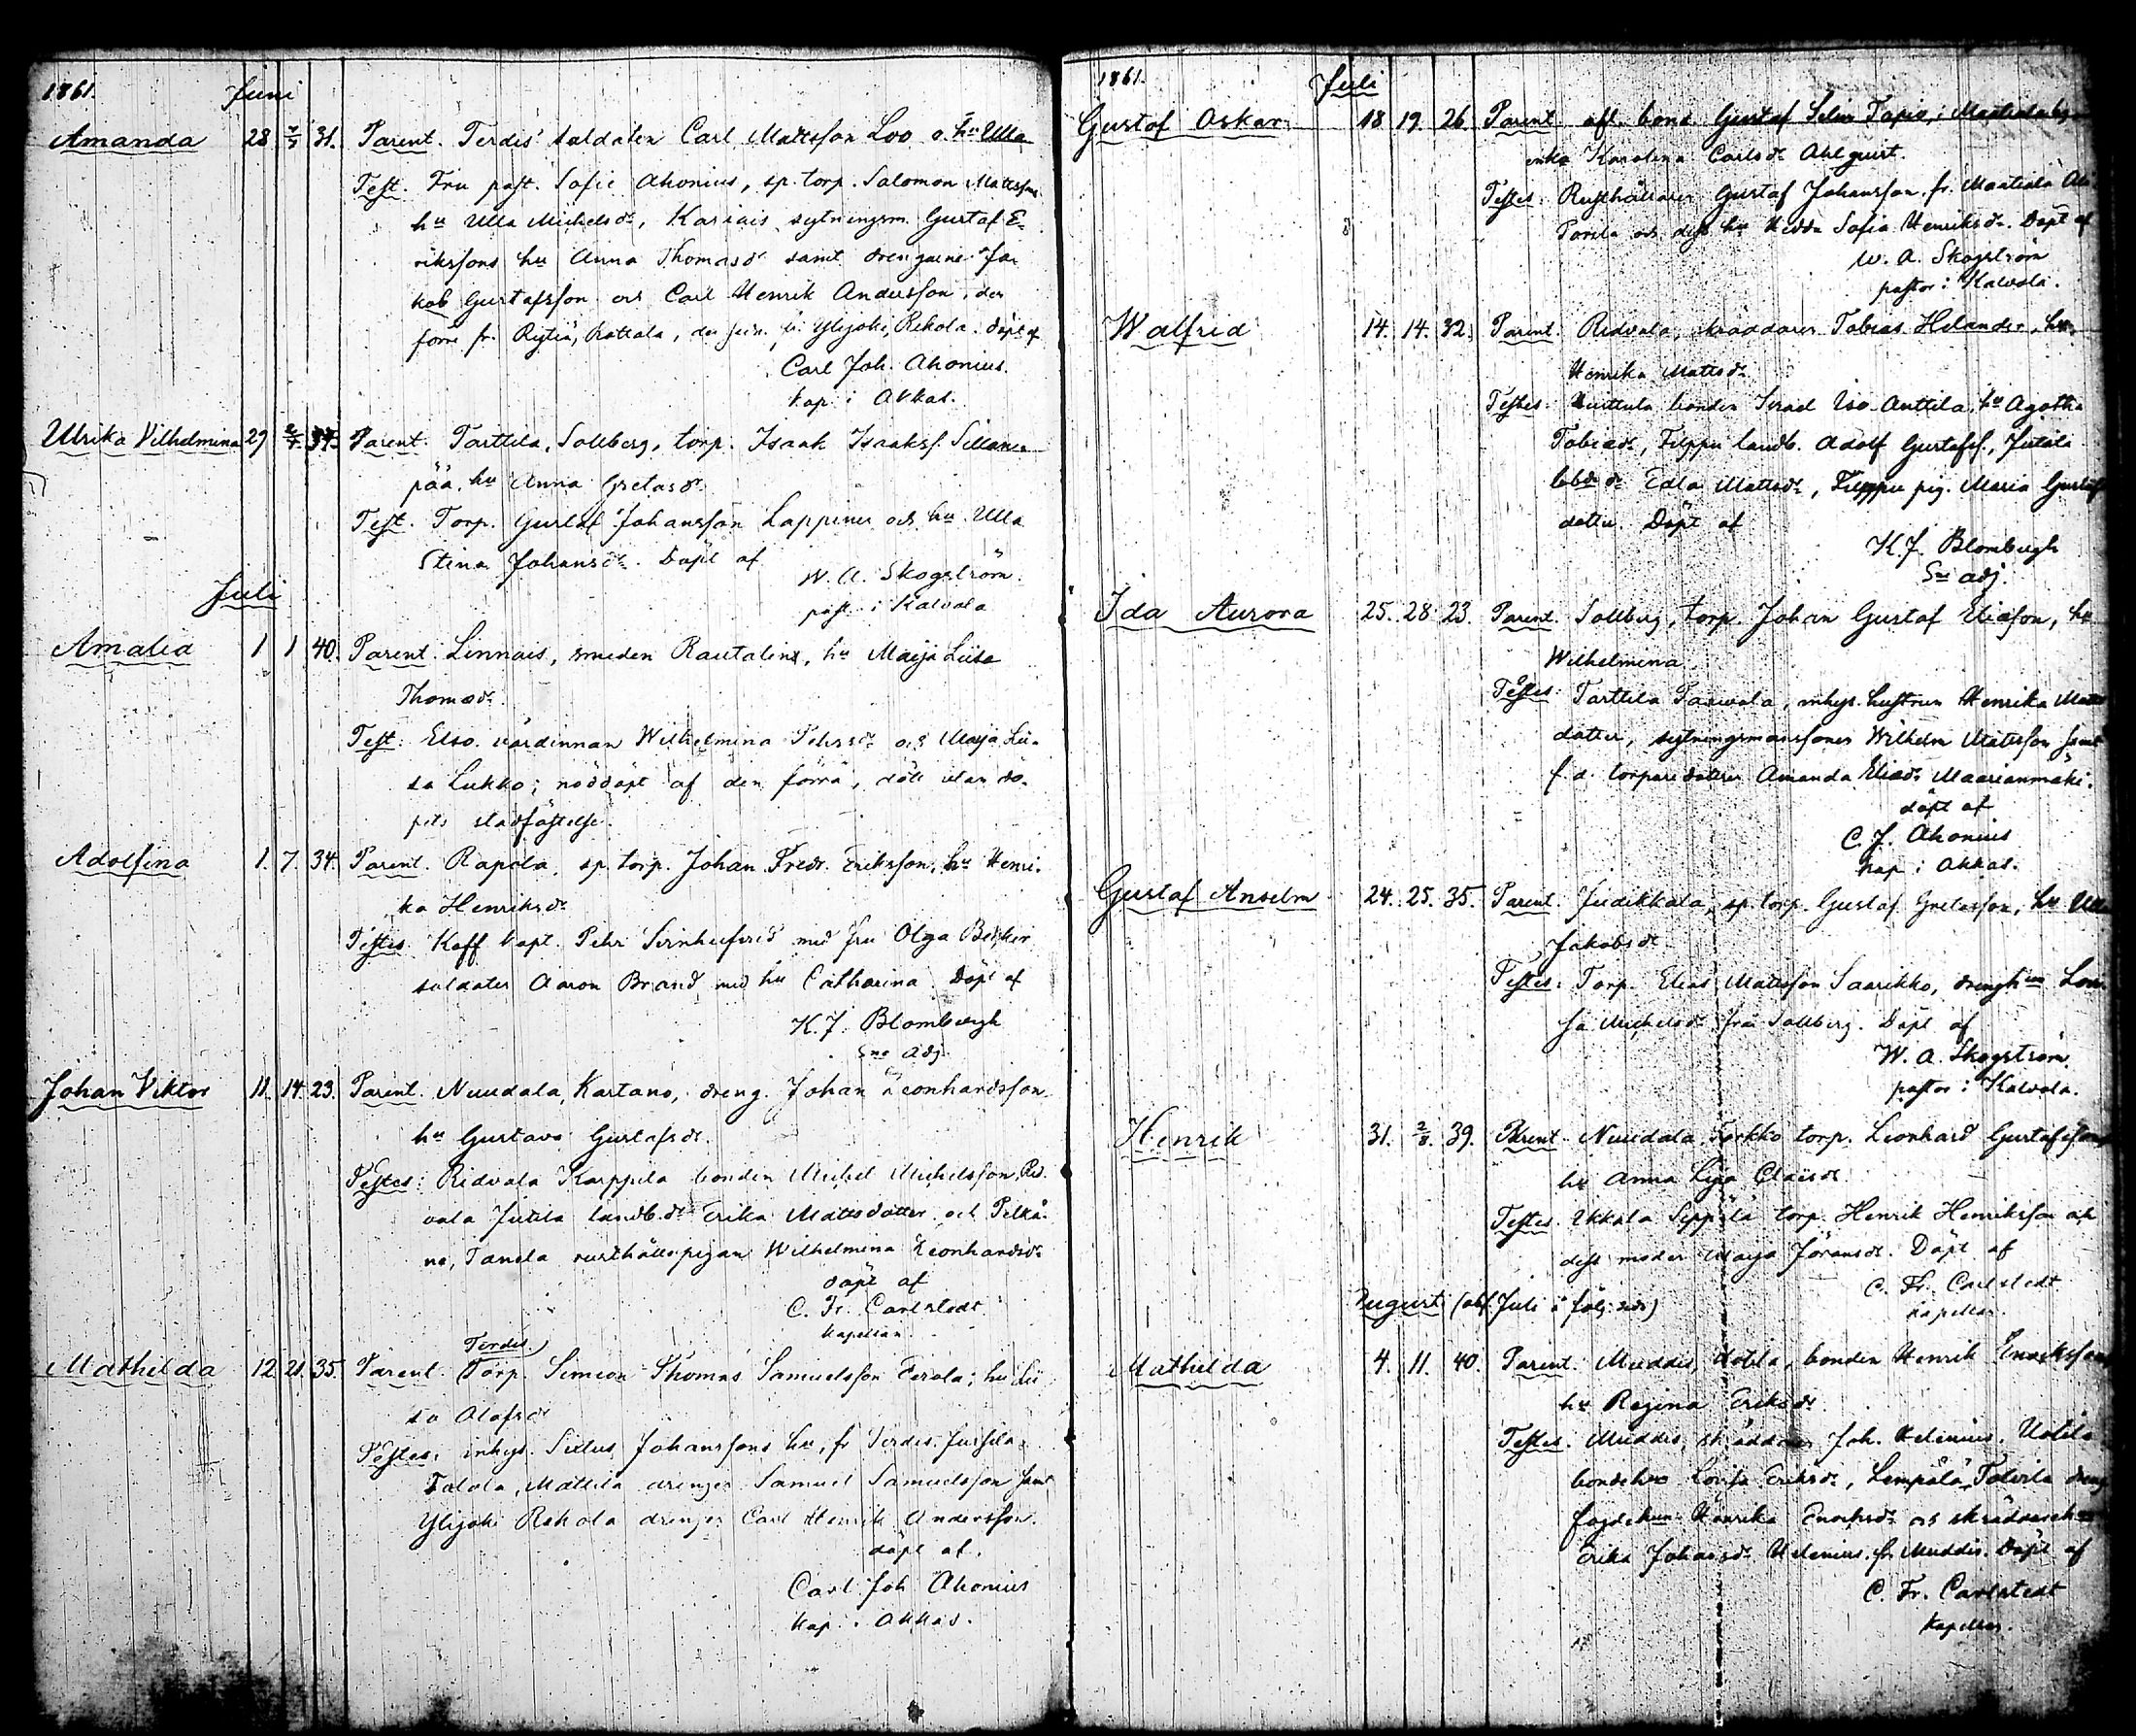 1861. Juni
Amanda 28 2/7 31. Parent. Terdis soldaten Carl Mattsson Loo o. hu Ulla
Test. Fru past. Sofie Ahonius, sp. torp. Salomon Mattssons
hu Ulla Michelsdr, Kariais sytningsm. Gustaf E-
rikssons hu Anna Thomasdr samt drengarne Ja-
kob Gustafsson och Carl Henrik Andersson, den
förre fr. Rytiä, Rattala, den sen. fr. Ylijoki, Rekola. Döpt af
Carl Joh. Ahonius.
kap. i Akkas.
Ulrika Vilhelmina 29 2/7 37. Parent. Tarttila, Sollberg, torp. Isaak Isaakss. Sillan-
pää, hu Anna Gretasdr.
Test. Torp. Gustaf Johansson Lappinen och hu Ulla
Stina Johansdr. Döpt af
W. A. Skogström.
past. i Kalvola
Juli
Amalia 1 1 40. Parent. Linnais, smeden Rautalin, hu Maija Liisa
Thomasdr.
Test: Elso. värdinnan Wilhelmina Pehrsdr och Maija Lii-
sa Lukko; nöddöpt af den förra, död utan do-
pets stadfästelse.
Adolfina 1. 7. 34. Parent. Rapola, sp. torp. Johan Fredr. Eriksson, hu Henri-
ka Henriksdr
Testes. Koff. kapt. Pehr Svinhufvud med fru Olga Becker
soldaten Aaron Brand med hu Catharina. Döpt af
K. J. Blombergh
Sne adj.
Johan Viktor 11. 14. 23. Parent. Nuudala, Kartano, dreng. Johan Leonhardsson
hu Gustava Gustafsdr.
Testes: Ridvala Karppila bonden Michel Michelsson, Rid-
vala Jutila landb. dr Erika Mattsdotter och Pelkä-
ne, Tanela rusthålls pigan Wilhelmina Leonhardsdr
döpt af
C. Fr. Carlstedt
kapellan.
Mathilda 12 21. 35. Parent. Terdis Torp. Simeon Thomas Samuelsson Eerola; hu Lii-
sa Olofsdr
Testes: inhys. Sixtus Johanssons hu, fr Terdis. Jussila
Talola, Mattila drengen Samuel Samuelsson samt
Ylijoki Rekola drengen Carl Henrik Andersson.
döpt af.
Carl Joh Ahonius
kap. i Akkas.
1861. Juli
Gustaf Oskar 18. 19. 26. Parent. afl. bond. Gustaf Selim Tapio, i Maatiala by
enka Karolina Carlsdr Ahlqvist.
Testes: Rusthållaren Gustaf Johansson fr. Maatiala
Torila och dess hu Hedda Sofia Henriksdr. Döpt af
W. A. Skogström
pastor i Kalvola.
Walfrid 14. 14. 32. Parent. Ridvala, skräddaren Tobias Helander, hu
Henrika Mattsdr
Testes: bonden Israel Iso-Anttila, hu Agatha
Tobiasdr, Filppu landb. Adolf Gustafss., Jutila
lbds dr Edla Mattsdr, Filppu pig. Maria Gustafs
dotter. Döpt af
K. J. Blombergh
Sne adj.
Ida Aurora 25. 28. 23. Parent. Sollberg, torp. Johan Gustaf Eliasson, hu
Wilhelmina
Testes: Tarttila Paavola, inhys. hustrun Henrika Matts
dotter, sytningsmanssonen Wilhelm Mattsson samt
f. d. torpare dottren Amanda Eliasdr Maarianmäki.
döpt af
C. J. Ahonius
kap. i Akkas.
Gustaf Anselm 24. 25. 35. Parent. Judikkala, sp. torp. Gustaf Gretasson, hu Ulla
Jakobsdr
Testes: Torp. Elias Mattsson Saarikko, drenghun Lovi-
sa Michelsdr från Sollberg. Döpt af
W. A. Skogström.
pastor i Kalvola.
Henrik 31. 2/8. 39. Parent. Nuudala, torp. Leonhard Gustafsson
hu Anna Lisa Claësdr.
Testes. Ukkola Seppälä torp. Henrik Henriksson och
dess moder Maija Göransdr. Döpt af
C. Fr. Carlstedt
kapellan.
Augusti (obs. Juli å följ. sida)
Mathilda 4. 11. 40. Parent. Muddis, Uotila, bonden Henrik Enocksson,
hu Regina Eriksdr
Testes. Muddis, skräddaren Joh. Helenius, Uotila
bondehu Lovisa Eriksdr, Lempälä, Tolvila dreng
fogdehun Henrika Enocksdr och skräddarehun
Erika Johansdr Helenius fr. Muddis. Döpt af
C. Fr. Carlstedt
kapellan.